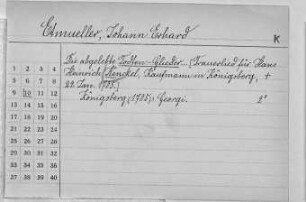 Etmueller, Johann Erhard
K
Die abgelebte Todten-Glieder... (Trauerlied für Hans
Heinrich Henckel, Kaufmann in Königsberg, +
22. Jan. 1705.)
Königsberg, (1705): Georgi. 2°
1 2 3 4
5 6 7 8
9 10 11 12
13 14 15 16
17 18 19 20
21 22 23 24
25 26 27 28
29 30 31 32
33 34 35 36
37 38 39 40